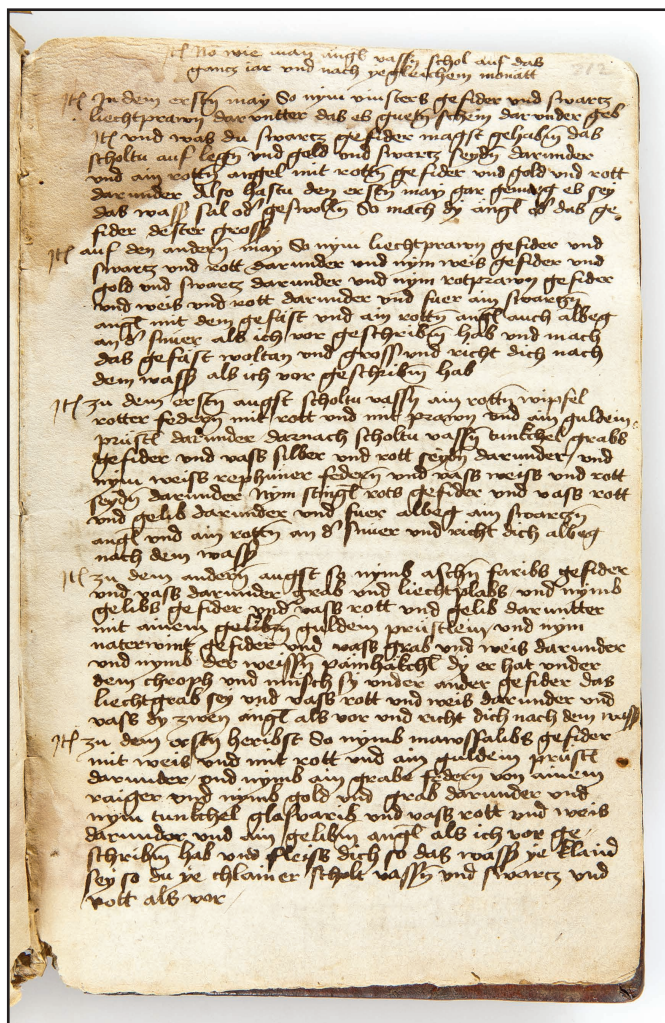 Itē No wie man angl vassñ schol auf das
gancz iar vnd nach yegleichem monatt
312
Itē In dem erstñ may So nym vinsters gefider vnd swartz
liechtprawn darvntter das es guetñ schein darvnder geb
Itē vnd was du swartz gefider magst gehabñ das
scholtu auf legñ vnd gold vnd swartz seydñ darunder
vnd ain rottñ anggel mit rottñ gefider vnd gold vnd rott
darunder Also hastu den erstñ may gar genueg es sey
das wass sal od geswollñ So mach dy angl od das ge
fider dester gross
Itē auf den andern may So nym liechtprawn gefider vnd
swartz vnd rott darunder vnd nym weis gefider vnd
gold vnd swartz darunder vnd nym rotprawn gefider
vnd weis vnd rott darunder vnd fuer ain swartzñ
angl mit dem gefäst vnd ain rottñ angl auch albeg
an d snuer als ich vor geschribñ hab vnd mach
das gefäst woltan vnd gross vnd richt dich nach
dem wass als ich vor geschribñ hab
Itē zu dem erstñ augst scholtu vassñ ain rottñ wipfel
rotter federñ mit rott vnd mit prawn vnd ain guldein
prüstl darunder darnach scholtu vassñ tunkchel grabs
gefider vnd vass silber vnd rott seydñ darunder vnd
nym weiss rephüner federñ vnd vass weiss vnd rott
seydñ darunder Nym stingl rots gefider vnd vass rott
vnd gelib darunder vnd fuer albeg ain swartzñ
angl vnd ain rottñ an d snuer vnd richt dich albeg
nach dem wass
Itē zu dem anderñ augst so nymb aschñ faribs gefider
vnd vass darunder grab vnd liechtplabs vnd nymb
gelibs gefider vnd vass rott vnd gelib darvntter
mit ainem gelibñ guldem prüstlein vnd nym
naterwint gefider vnd vass grab vnd weis darunder
vnd nymb der weissñ painhäkchl dy er hat vnder
dem chroph vnd misch sy vnder ander gefider das
liechtgrab sey vnd vass rott vnd weis darunder vnd
vass dy zwen angl als vor vnd richt dich nach dem wass
Itē zu dem erstñ heribst So nymb mawsfalibs gefider
mit weis vnd mit rott vnd ain guldem prüstl
darunder vnd nymb ain grabe federñ von ainem
raiger vnd nymb gold vnd grab darunder vnd
nym tunkchel glasvaribs vnd vass rott vnd weis
darunder vnd ain gelibñ angl als ich vor ge
schribñ hab vnd fleiss dich so das wass ye klain
sey so du ye chlainer scholt vassñ vnd swartz vnd
rott als vor